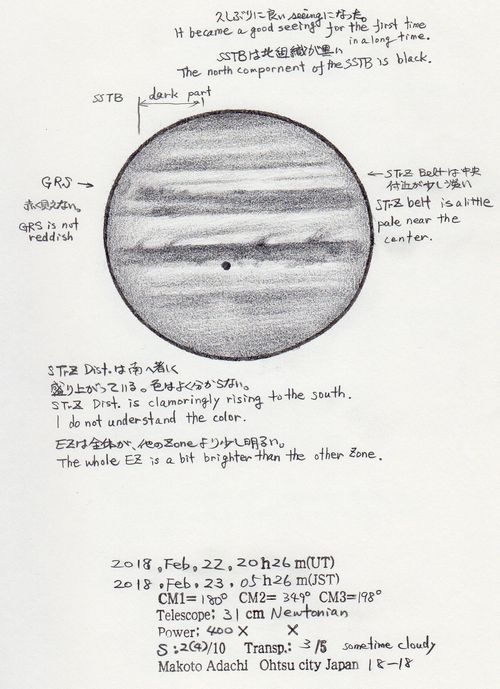 久しぶりに良いseeingになった。
It became a good seeing for the first time
in a long time.
SSTBは北組織が黒い
The north compornent of the SSTB is black.
SSTB
dark part
GRS →
赤く見えない。
GRS is not
reddish
← STrZ Beltは中央
付近が少し淡い
STrZ belt is a little
pale near the
center.
STrZ Dist.は南へ著しく
盛り上がっている。色はよく分からない。
STrZ Dist. is clamoringly rising to the south.
I do not understand the color.
EZは全体が、他のZoneより少し明るい。
The whole EZ is a bit brighter than the other Zone.
2018, Feb, 22, 20h26m(UT)
2018, Feb, 23, 05h26m(JST)
CM1= 180° CM2= 349° CM3=198°
Telescope: 31 cm Newtonian
Power: 400× ×
S:2(4)/10 Transp.: 3/5 sometime cloudy
Makoto Adachi Ohtsu city Japan 18-18